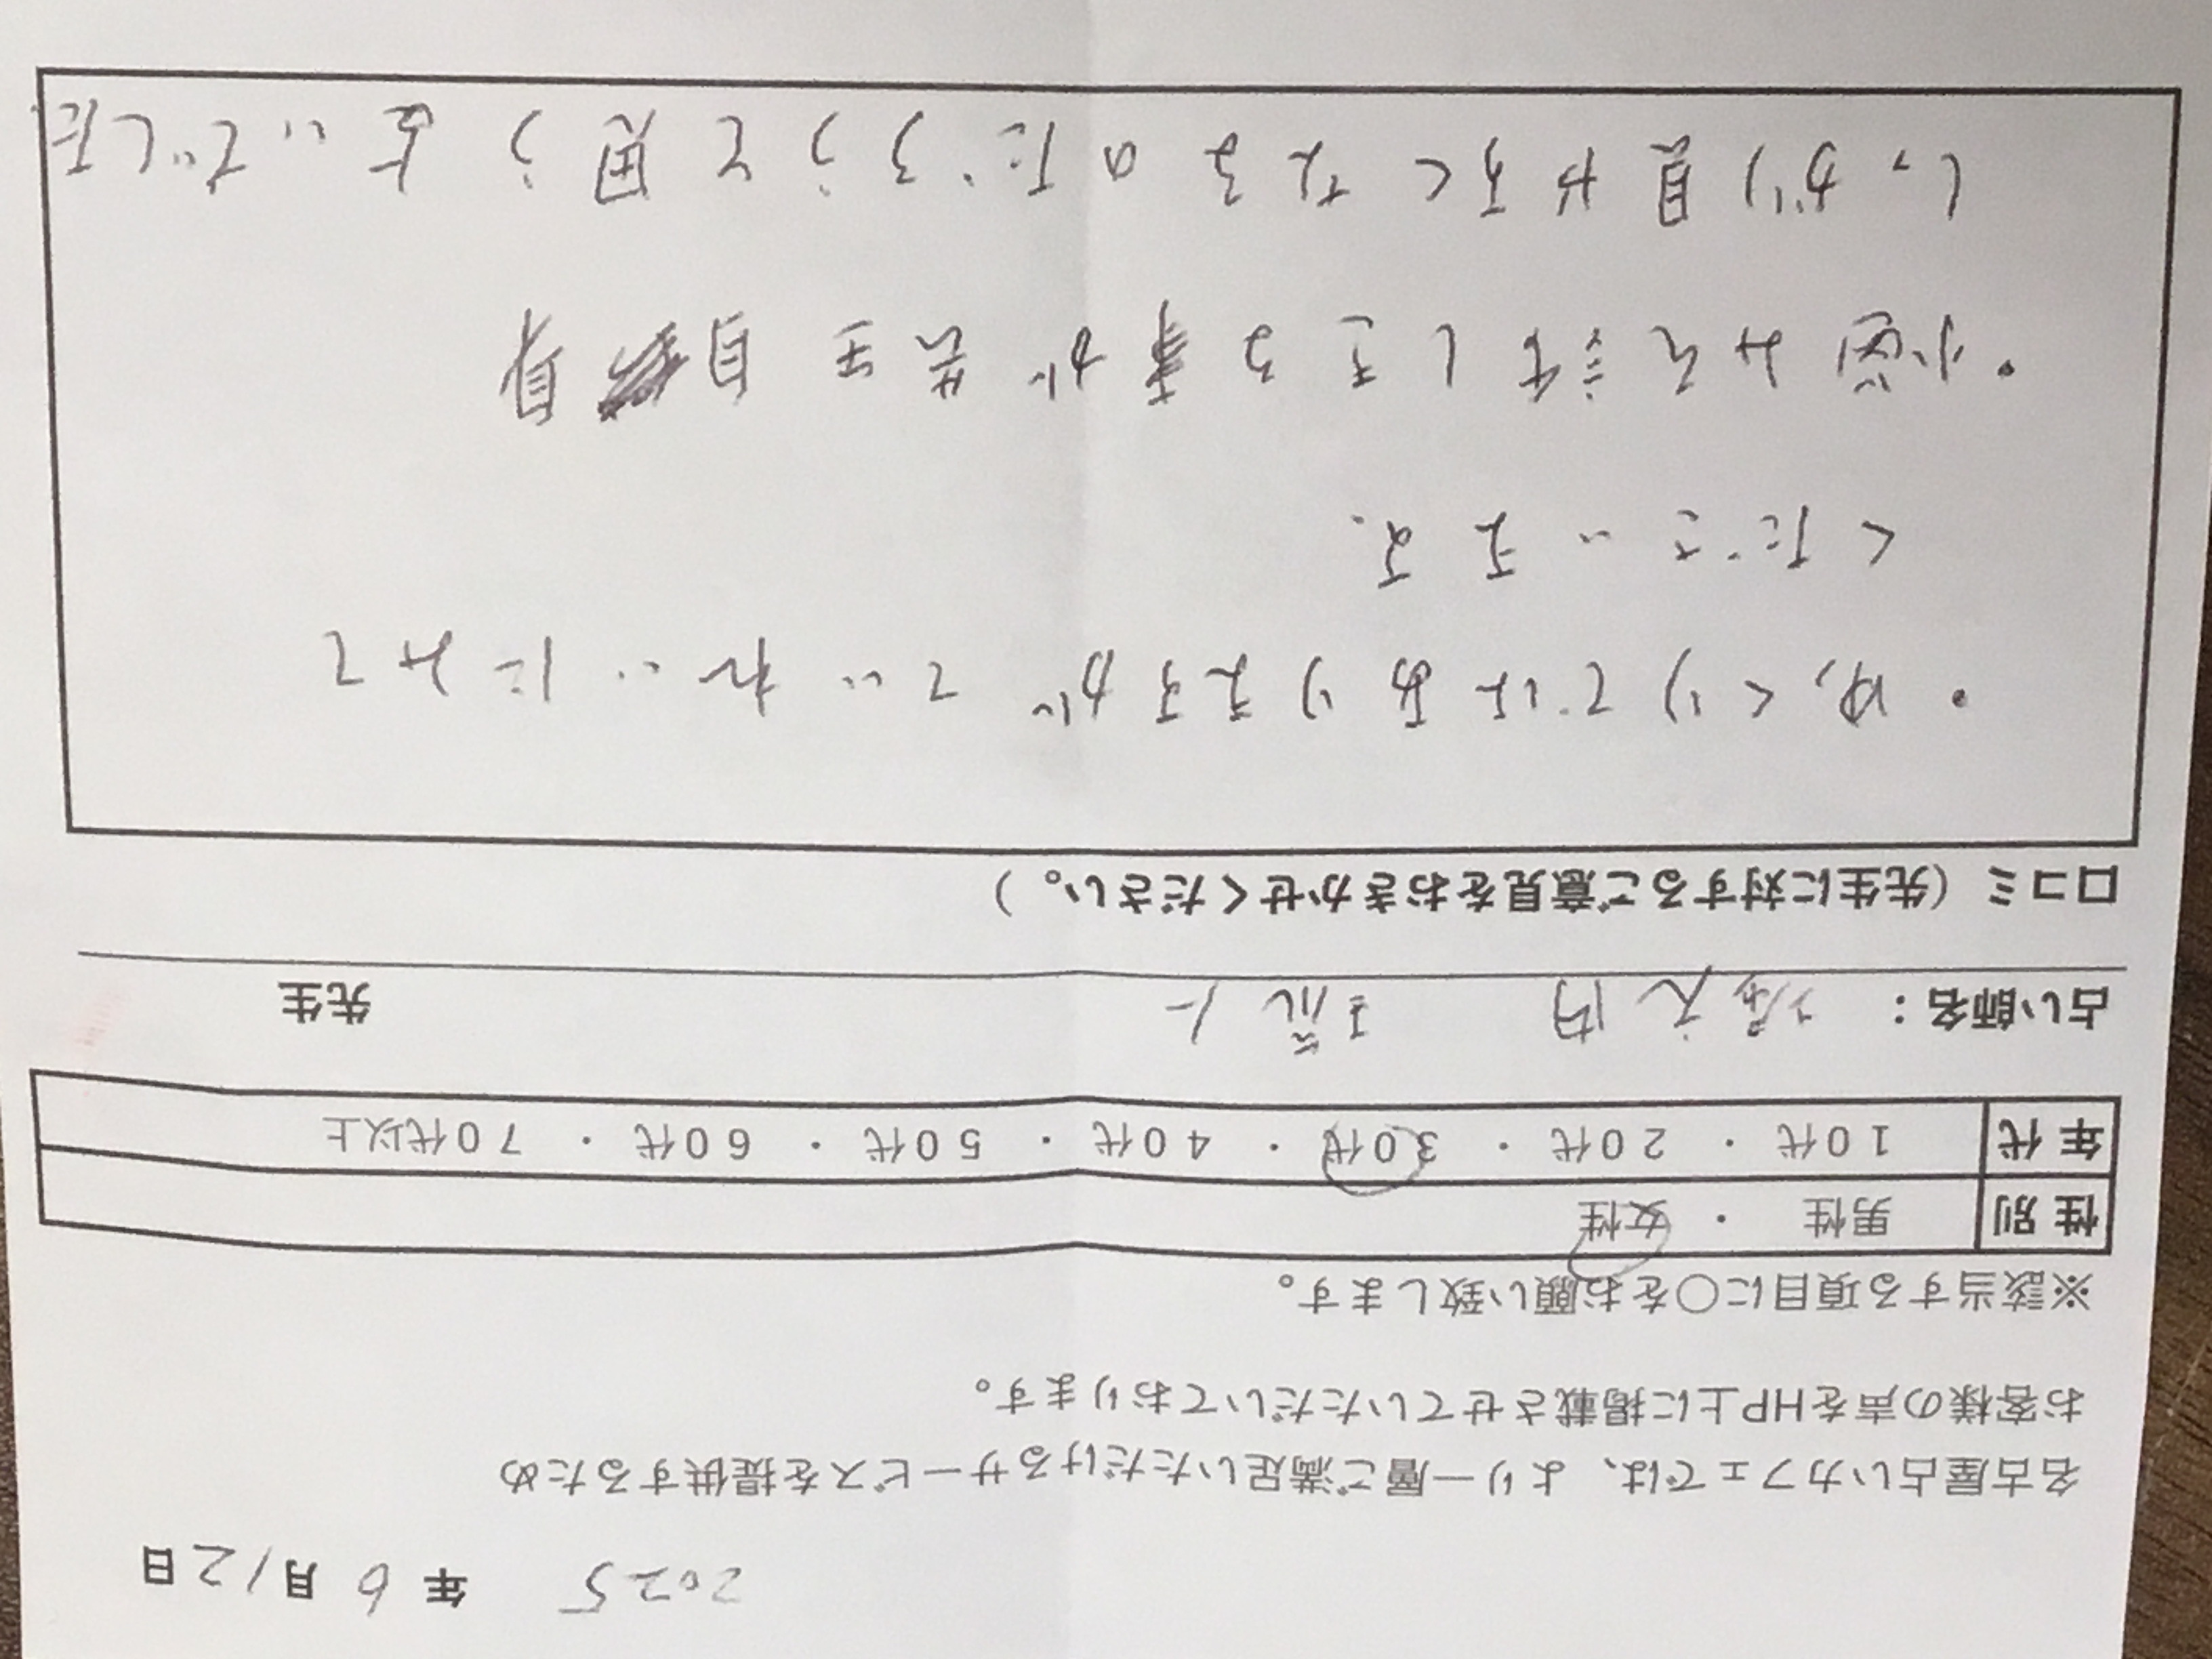 2025年6月12日
名古屋占いカフェでは、より一層ご満足いただけるサービスを提供するため
お客様の声をHP上に掲載させていただいております。
※該当する項目に〇をお願い致します。
性別 男性 ・ 女性
年代 10代 ・ 20代 ・ 30代 ・ 40代 ・ 50代 ・ 60代 ・ 70代以上
占い師名： 内 先生
口コミ（先生に対するご意見をおきかせください。）
・ゆっくりではありますが ていねいにみて
くださいます.
・小道 みち 話しをする事が先生自身
しっかり見やすくなるのだろうと思う よいでした